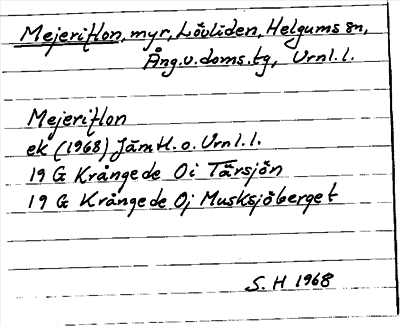 Mejeriflon, myr, Lövliden, Helgums sn,
Ång.v.doms.tg, Vrnl.l.
Mejeriflon
ek (1968) Jämtl. o. Vrnl.l.
19 G Krångede Oi Tärsjön
19 G Krångede Oj Musksjöberget
S. H 1968